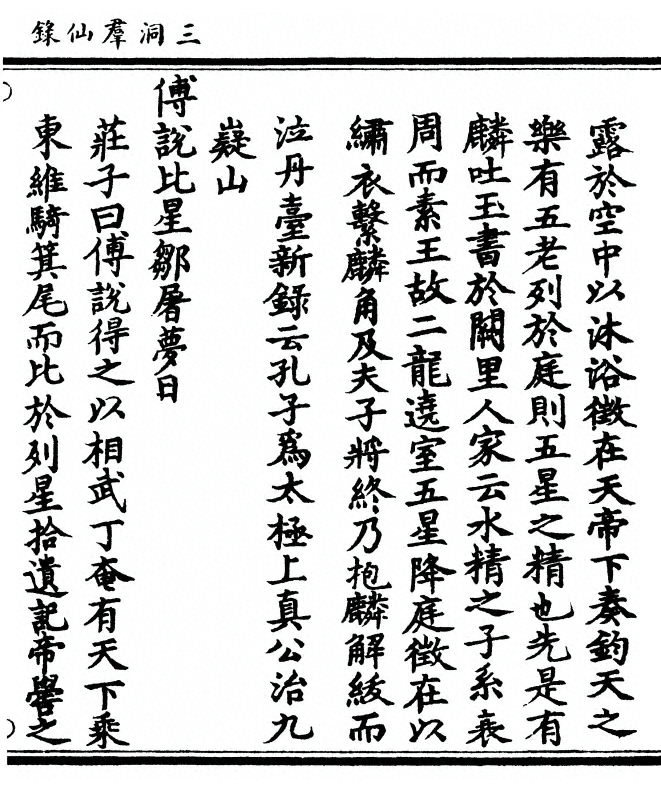 三洞羣仙錄
露於空中以沐浴徵在天帝下奏鈞天之
樂有五老列於庭則五星之精也先是有
麟吐玉書於闕里人家云水精之子系衰
周而素王故二龍遶室五星降庭徵在以
繡衣繫麟角及夫子將終乃抱麟解紱而
泣丹臺新錄云孔子爲太極上真公治九
嶷山
傅說比星鄒屠夢日
莊子曰傅說得之以相武丁奄有天下乘
東維騎箕尾而比於列星拾遺記帝嚳之